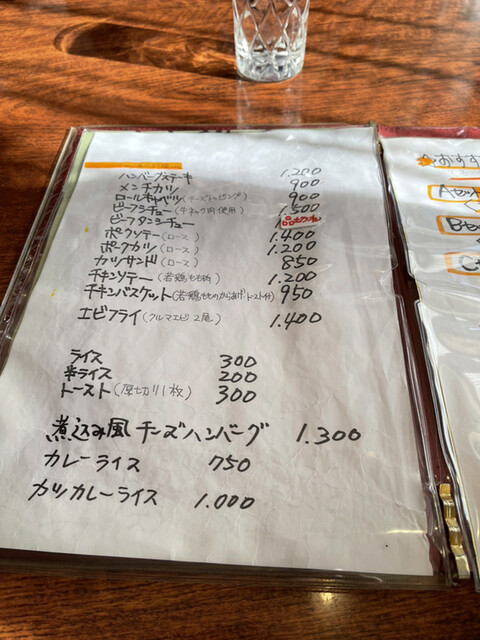 ハンバーグステーキ 1.200
メンチカツ 900
ロールキャベツ(チーズトッピング) 900
ビーフシチュー(牛ネック肉使用) 1.500
ビーフタンシチュー 品切れ
ポークソテー(ロース) 1.400
ポークカツ(ロース) 1.200
カツサンド(ロース) 850
チキンソテー(若鶏もも肉) 1.200
チキンバスケット(若鶏もものからあげ トースト付) 950
エビフライ(クルマエビ2尾) 1.400
ライス 300
半ライス 200
トースト(厚切り1枚) 300
煮込み風チーズハンバーグ 1.300
カレーライス 750
カツカレーライス 1.000
おすす
Aセッ
Bセ
C